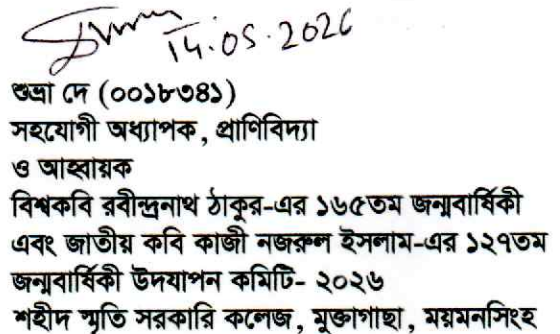 14.05.2026
শুভ্রা দে (০০১৮৩৪১)
সহযোগী অধ্যাপক, প্রাণিবিদ্যা
ও আহ্বায়ক
বিশ্বকবি রবীন্দ্রনাথ ঠাকুর-এর ১৬৫তম জন্মবার্ষিকী
এবং জাতীয় কবি কাজী নজরুল ইসলাম-এর ১২৭তম
জন্মবার্ষিকী উদযাপন কমিটি- ২০২৬
শহীদ স্মৃতি সরকারি কলেজ, মুক্তাগাছা, ময়মনসিংহ